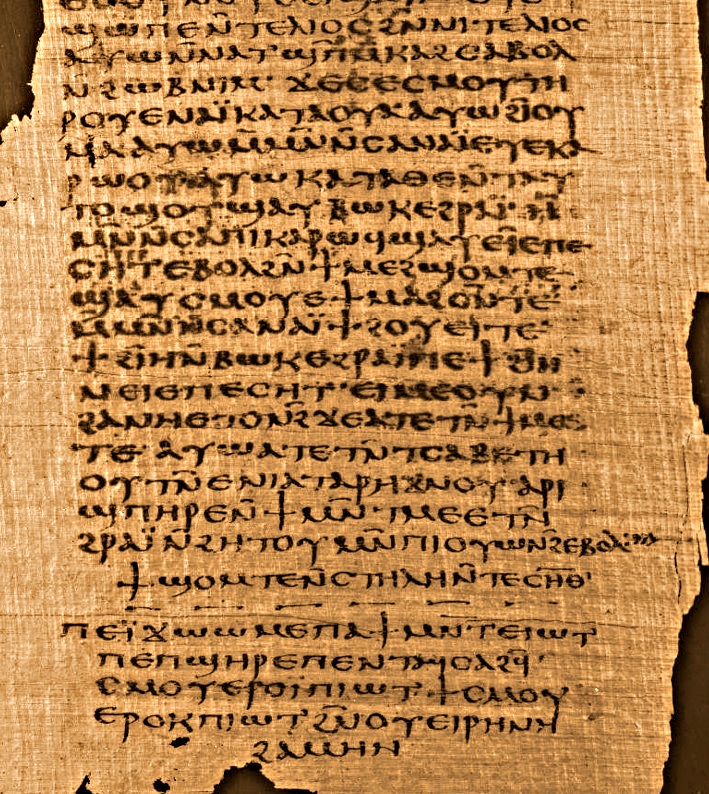 ϣⲱⲡⲉ ⲛ̄ⲧⲉⲗⲓⲟⲥ ϩⲛ̄ ⲛⲓⲧⲉⲗⲓⲟⲥ
ⲁⲩⲱ ⲛ̄ⲛⲁⲧϣⲡ̄ⲙ̄ⲕⲁϩ ⲉⲃⲟⲗ
ⲛ̄ϩⲱⲃ ⲛⲓⲙ· ϫⲉ ⲥⲉⲥⲙⲟⲩ ⲧⲏ
ⲣⲟⲩ ⲉⲛⲁⲓ̈ ⲕⲁⲧⲁ ⲟⲩⲁ ⲁⲩⲱ ϩⲓ ⲟⲩ
ⲙⲁ ⲁⲩⲱ ⲙⲛ̄ⲛ̄ⲥⲁ ⲛⲁⲓ̈ ⲉⲩⲉⲕⲁ
ⲣⲱⲟⲩ ⲁⲩⲱ ⲕⲁⲧⲁ ⲑⲉ ⲛ̄ⲧⲁⲩ
ⲧⲟϣⲟⲩ ϣⲁⲩⲃⲱⲕ ⲉϩⲣⲁⲓ̈· ⲏ
ⲙⲛ̄ⲛ̄ⲥⲁ ⲡⲓⲕⲁⲣⲱϥ ϣⲁⲩⲉⲓ ⲉⲡⲉ
ⲥⲏⲧ ⲉⲃⲟⲗ ϩⲛ̄ ϯⲙⲉϩϣⲟⲙⲧⲉ
ϣⲁⲩⲥⲙⲟⲩ ⲉϯⲙⲁϩⲥⲛ̄ⲧⲉ
ⲙⲛ̄ⲛ̄ⲥⲁ ⲛⲁⲓ̈ ϯϩⲟⲩⲉⲓⲧⲉ·
ϯϩⲓⲏ ⲛ̄ⲃⲱⲕ ⲉϩⲣⲁⲓ̈ ⲡⲉ ϯϩⲓⲏ
ⲛ̄ⲉⲓ ⲉⲡⲉⲥⲏⲧ· ⲉⲓⲙⲉ ⲟⲩⲛ
ϩⲁ ⲛⲏ ⲉⲧⲟⲛϩ̄ ϫⲉ ⲁⲧⲉⲧⲛ̄ϯⲙⲉ
ⲧⲉ· ⲁⲩⲱ ⲁⲧⲉⲧⲛ̄ⲧⲥⲁⲃⲉ ⲧⲏ
ⲟⲩⲧⲛ̄ ⲉⲛⲓⲁⲧⲁⲣⲏϫⲛⲟⲩ· ⲁⲣⲓ
ϣⲡⲏⲣⲉ ⲛ̄ϯⲙⲛ̄ⲧⲙⲉ ⲉⲧⲛ̄
ϩⲣⲁⲓ̈ ⲛ̄ϩⲏⲧⲟⲩ ⲙⲛ̄ ⲡⲓⲟⲩⲱⲛϩ ⲉⲃⲟⲗ
ϯϣⲟⲙⲧⲉ ⲛ̄ⲥⲧⲏⲗⲏ ⲛ̄ⲧⲉ ⲥⲏⲑ·
ⲡⲉⲓ̈ϫⲱⲱⲙⲉ ⲡⲁ ϯⲙⲛ̄ⲧⲉⲓⲱⲧ
ⲡⲉ ⲡϣⲏⲣⲉ ⲡⲉⲛⲧⲁϥⲥⲁϩϥ̄·
ⲥⲙⲟⲩ ⲉⲣⲟⲓ̈ ⲡⲓⲱⲧ· ϯⲥⲙⲟⲩ
ⲉⲣⲟⲕ ⲡⲓⲱⲧ ϩⲛ̄ ⲟⲩⲉⲓⲣⲏⲛⲏ
ϩⲁⲙⲏⲛ